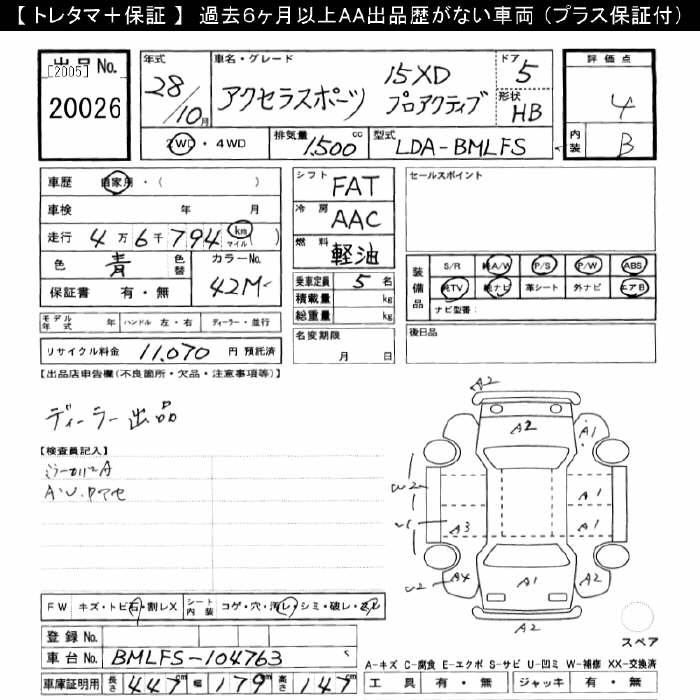 【 トレタマ＋保証 】 過去６ヶ月以上AA出品歴がない車両（プラス保証付）
出品No. [2005] 20026
年式 28/10月
車名・グレード アクセラスポーツ 15XD プロアクティブ
ドア 5
形状 HB
2WD・4WD
排気量 1,500cc
型式 LDA-BMLFS
評価点 4
内装 B
車歴 自家用・( )
車検 年 月
走行 4万6千794 km マイル ( )
色 青 色替 カラーNo. 42M
保証書 有・無
モデル年式 年 ハンドル 左・右 ディーラー・並行
リサイクル料金 11,070 円 預託済
シフト FAT
冷房 AAC
燃料 軽油
乗車定員 5名
積載量 kg
総重量 kg
名変期限 月 日
セールスポイント
装備品 S/R 純A/W P/S P/W ABS
純TV 純ナビ 革シート 外ナビ エアB
ナビ型番：
後日品
【出品店申告欄(不良箇所・欠品・注意事項等)】
ディーラー出品
【検査員記入】
ミラーカバーA
A2
A2
A1
W2
A1
A3
A1
W2
AX
A1
A2
A2
スペア
FW キズ・トビ石・割レX シート内装 コゲ・穴・汚レ・シミ・破レ・スレ
登録No.
車台No. BMLFS-104763
車庫証明用 長さ 447cm 幅 179cm 高さ 147cm
A-キズ C-腐食 E-エクボ S-サビ U-凹ミ W-補修 XX-交換済
工具 有・無 ジャッキ 有・無